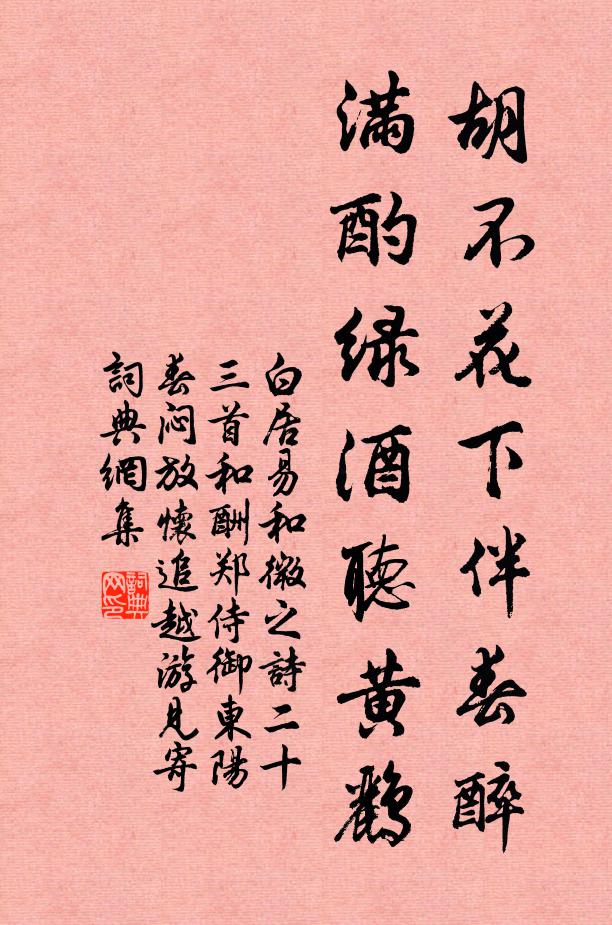 胡不花下伴春醉
满酌绿酒聽黄鸝
白居易和微之詩二十
三首和酬郑侍御東陽
春闷放懷追越游見寄
詞典網集
詞典网印